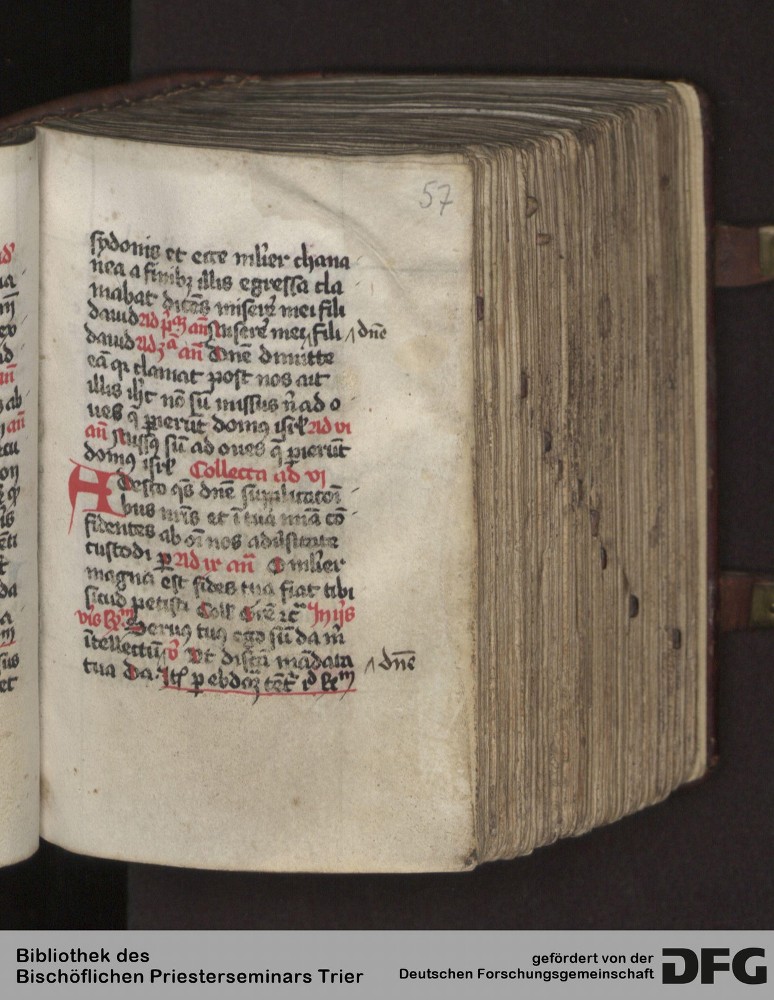 57
sydonis et ecce mlʼier chana
nea a finibꝫ illis egressa cla
mabat dicēs misereꝫ mei fili
dauid ad pʼaꝫ añ Miserꝫ mei fili ʌ dn̄e
dauid Ad ʒa añ Dn̄e dimitte
eā qꝛ clamat post nos ait
illis ih̄c nō sū missus n̄ ad o
ues q̄ pierūt domꝯ isrl̄ ad vi
añ Missꝯ sū ad oues q̄ pierūt
domꝯ isrl̄ Collecta ad vi
Adesto qs̄ dn̄e supplicacōī
bus nr̄is et ī tua mīa cō
fidentes ab oī nos aduersitate
custodi p Ad ix añ O mlʼier
magna est fides tua fiat tibi
sicud petisti Coll
Seruꝯ tuꝯ ego sū da m̄
ītellectū v̄ Et discā mādata ʌ dn̄e
tua Da
Bibliothek des
Bischöflichen Priesterseminars Trier
gefördert von der
Deutschen Forschungsgemeinschaft
DFG